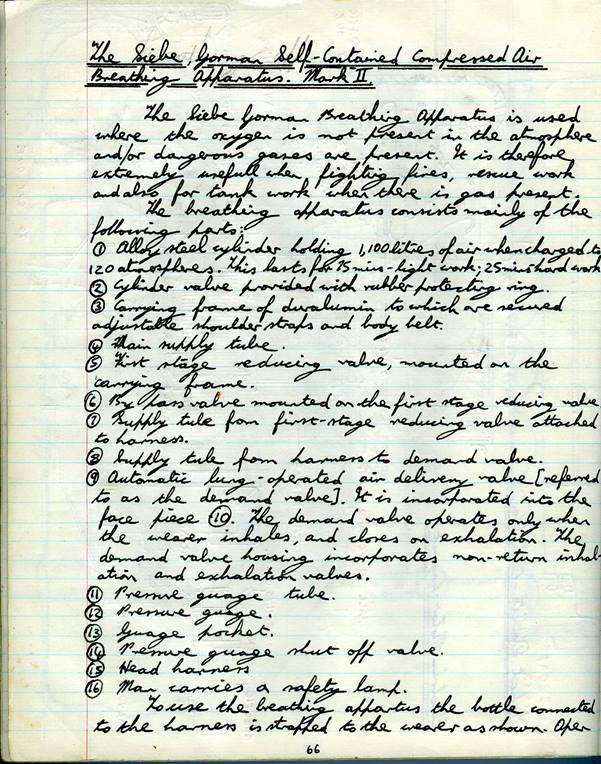 The Siebe, Gorman Self-Contained Compressed Air
Breathing Apparatus. Mark II.
The Siebe Gorman Breathing Apparatus is used
where the oxygen is not present in the atmosphere
and/or dangerous gases are present. It is therefore
extremely usefull when fighting fires, rescue work
and also for tank work when there is gas present.
The breathing apparatus consists mainly of the
following parts:
① Alloy steel cylinder holding 1,100 litres of air when charged to
120 atmospheres. This lasts for 75 mins - light work; 25 mins hard work
② Cylinder valve provided with rubber protecting ring.
③ Carrying frame of duralumin to which are secured
adjustable shoulder straps and body belt.
④ Main supply tube.
⑤ First stage reducing valve, mounted on the
carrying frame.
⑥ By pass valve mounted on the first stage reducing valve
⑦ Supply tube from first-stage reducing valve attached
to harness.
⑧ Supply tube from harness to demand valve.
⑨ Automatic lung-operated air delivery valve [referred
to as the demand valve]. It is incorporated into the
face piece ⑩. The demand valve operates only when
the wearer inhales, and closes on exhalation. The
demand valve housing incorporates non-return inhal-
ation and exhalation valves.
⑪ Pressure guage tube.
⑫ Pressure guage.
⑬ Guage pocket.
⑭ Pressure guage shut off valve.
⑮ Head harness
⑯ Man carries a safety lamp.
To use the breathing appartus the bottle connected
to the harness is strapped to the wearer as shown. Oper
66